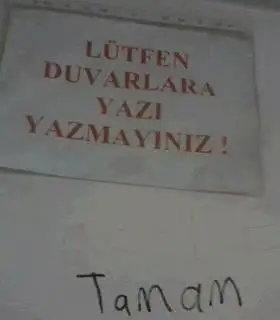 LÜTFEN
DUVARLARA
YAZI
YAZMAYINIZ !
Tamam